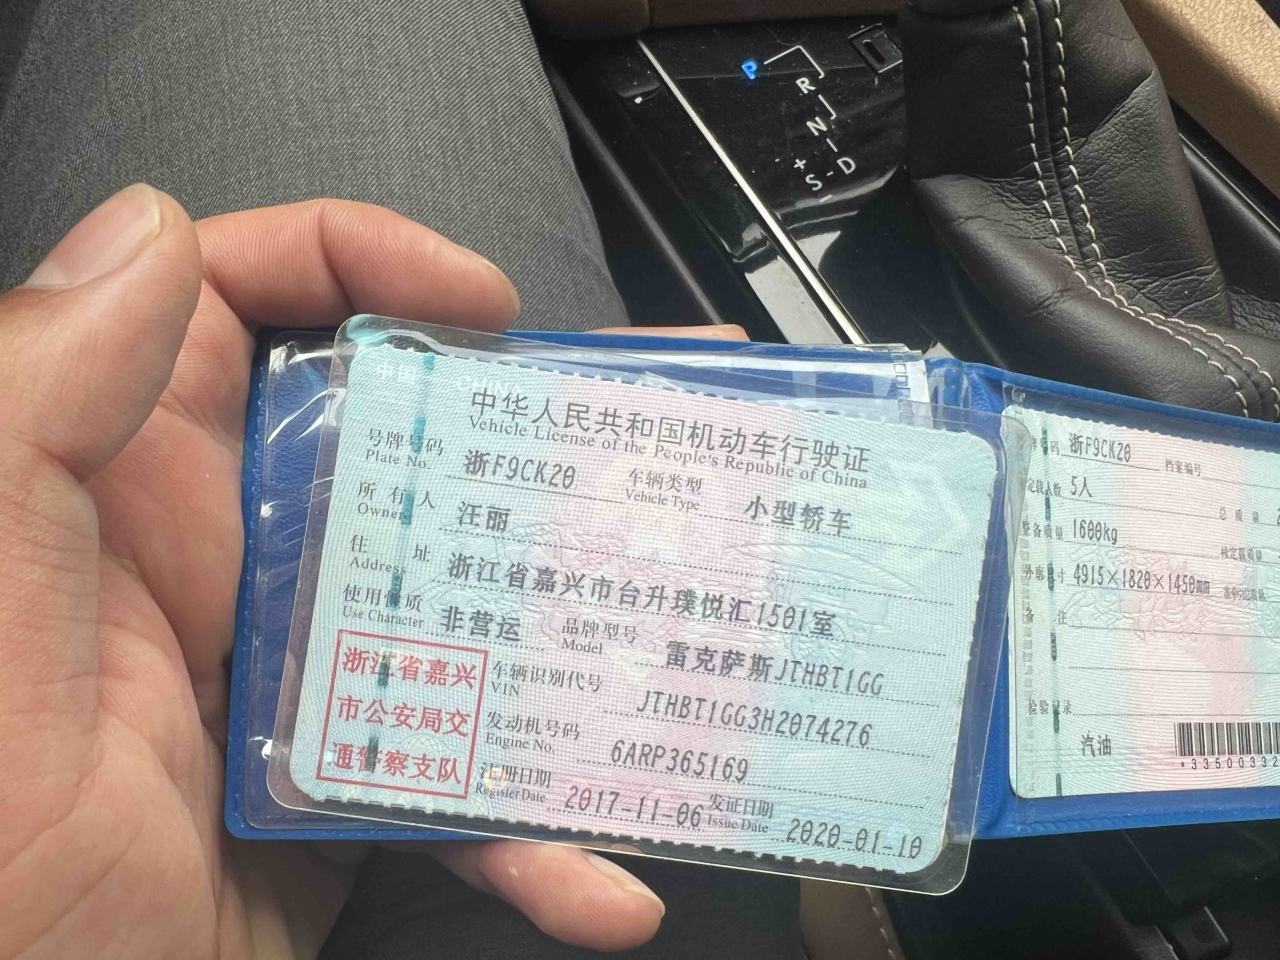 P
R
N
+
S-D
-
中国 CHINA
中华人民共和国机动车行驶证
Vehicle License of the People's Republic of China
号牌号码 浙F9CK20 车辆类型 小型轿车
Plate No. Vehicle Type
所有人 汪丽
Owner
住址 浙江省嘉兴市台升璞悦汇1501室
Address
使用性质 非营运 品牌型号 雷克萨斯JTHBT1GG
Use Character Model
浙江省嘉兴
市公安局交
通警察支队
车辆识别代号 JTHBT1GG3H2074276
VIN
发动机号码 6ARP365169
Engine No.
注册日期 2017-11-06 发证日期 2020-01-10
Register Date Issue Date
号牌号码 浙F9CK20 档案编号
核定载人数 5人 总质量
整备质量 1600kg 核定载质量
外廓尺寸 4915×1820×1450mm
备注
检验记录
汽油